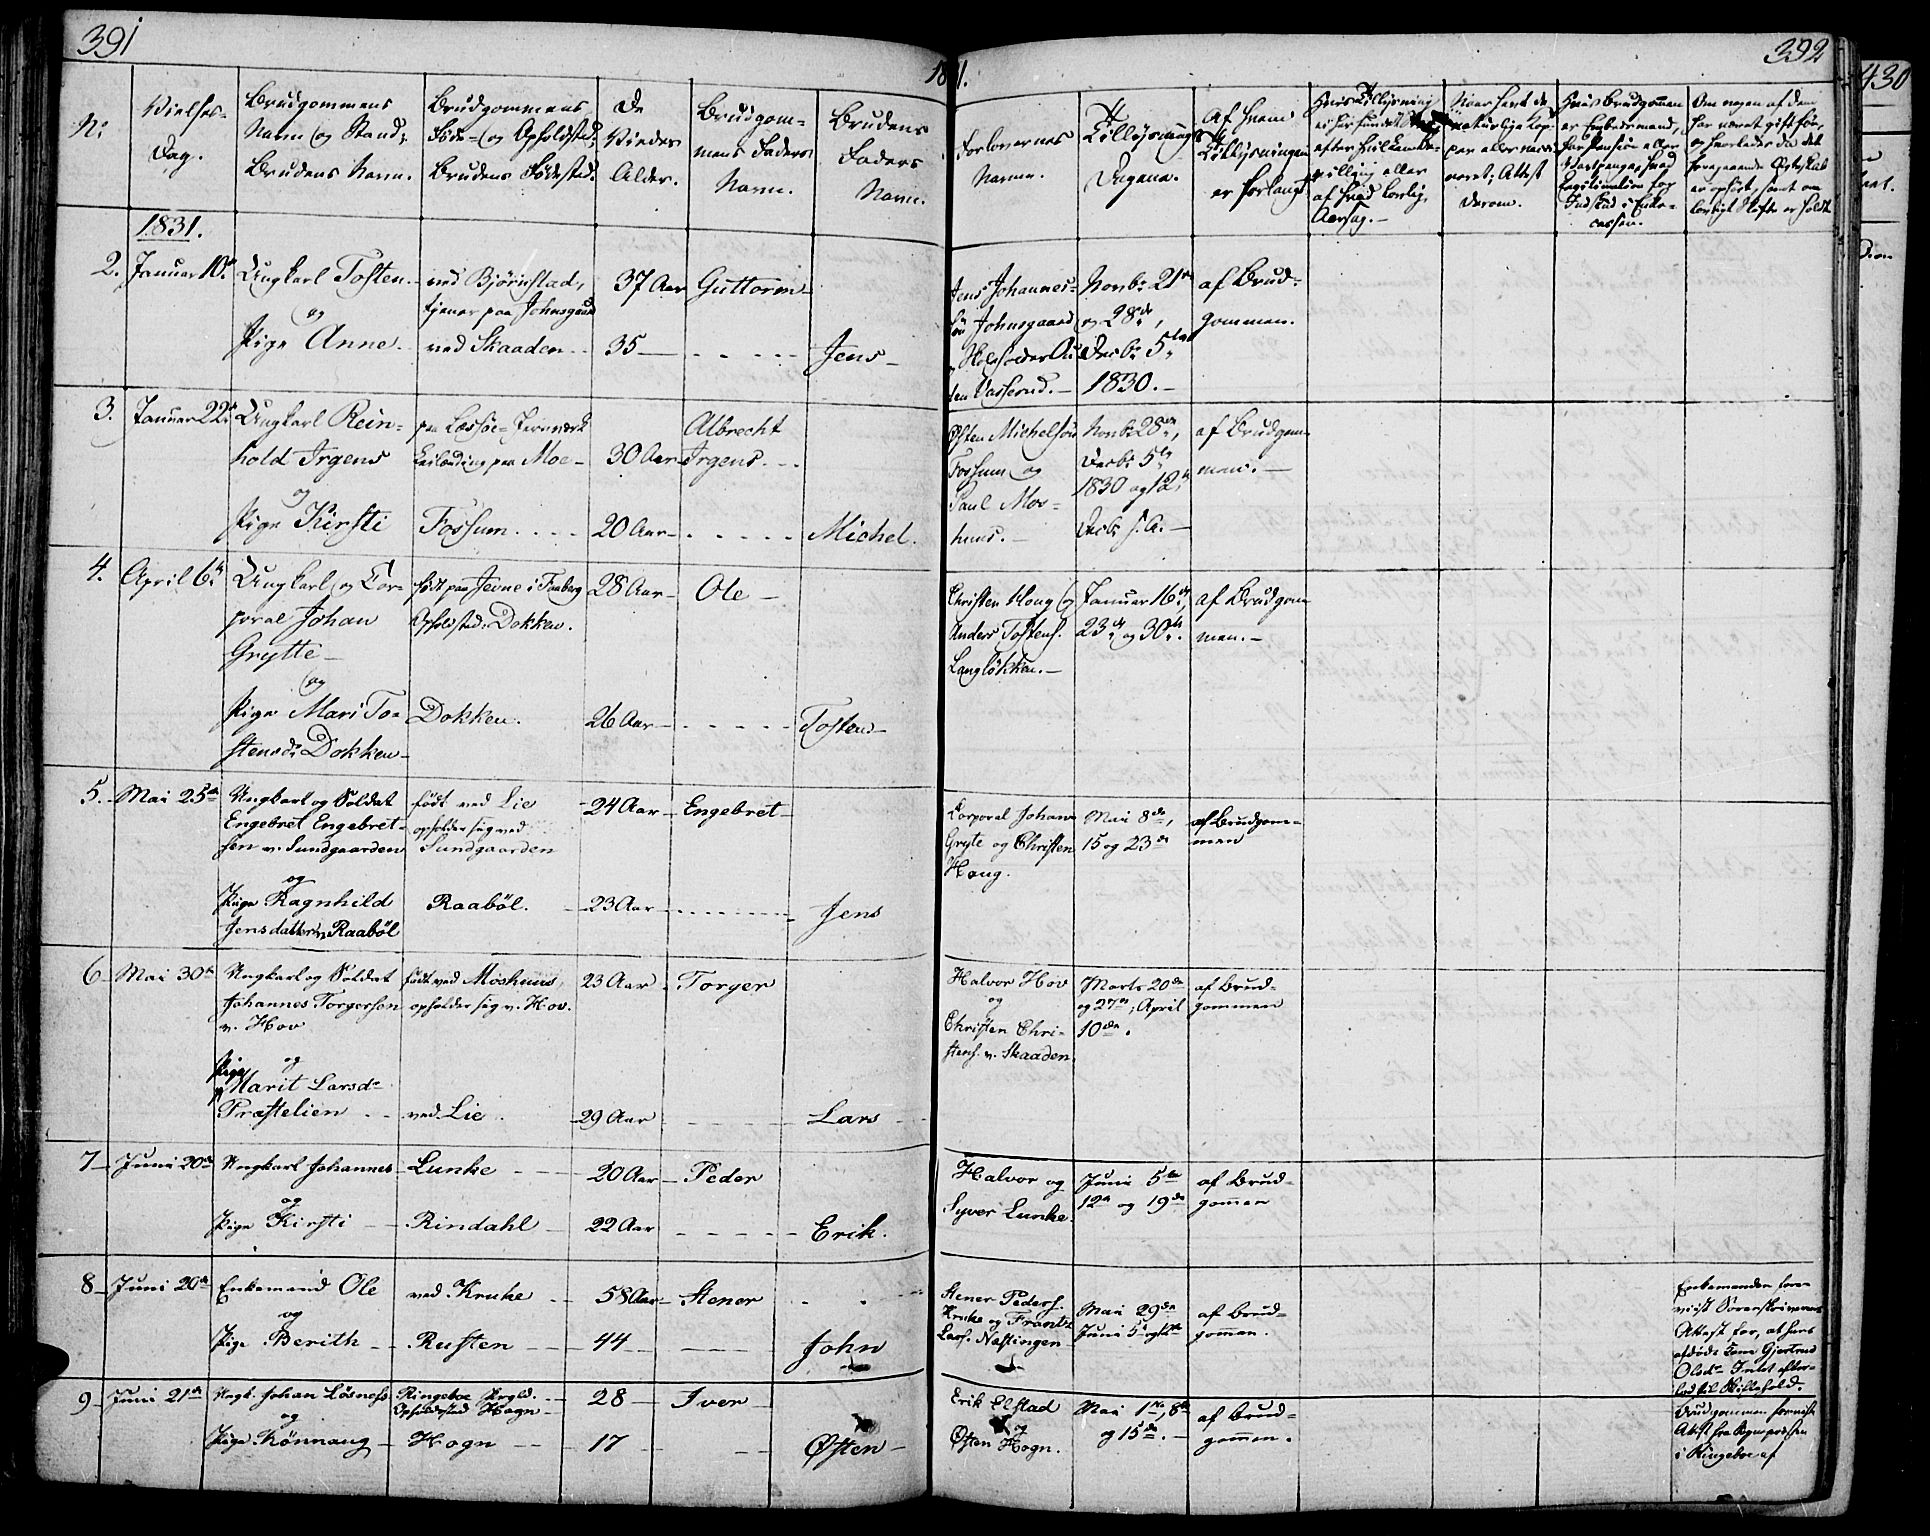 391
392
430
N:
Vielses-
Dag.
Brudgommens
Navn og Stand;
Brudens Navn.
Brudgommens
Føde- og Opholdsted;
Brudens Fødested.
De
Viedes
Alder.
Brudgom-
mens Faders
Navn.
Brudens
Faders
Navn.
Forlovernes
Navne.
Tillysnings
Dagene.
Af hvem
Tillysningen
er forlangt
Om nogen af dem
har været gift før,
1831.
2. Januar 10de
Ungkarl Tosten
og
Pige Anne
ved Bjørnstad,
tjener paa Johnsgaard
ved Skaaden
37 Aar
35
Guttorm
Jens
Jens Johannes-
søn Johnsgaard
Novbr 21de
og 28de,
Decbr 5te
1830.
af Brud-
gommen.
3. Januar 22de
Ungkarl Rein-
hold Irgens
og
Pige Kirsti
paa Læssøe-Jernværk
paa Moe
Fossum
30 Aar
20 Aar
Albrecht
Irgens
Michel.
Østen Michelsøn
Fossum og
Paul Mos-
huus.
Novbr 28de,
Decbr 5te
1830 og 12te
Decbr s. A.
af Brudgom-
men.
4. April 6te
Ungkarl og Cor-
poral Johan
Grytte
og
Pige Mari To-
stensdr Dokken
født paa Jevne i Faaberg
Opholdsted: Dokken.
Dokken.
28 Aar
26 Aar
Ole
Tosten
Christen Houg og
Anders Tostens.
Langløkken.
Januar 16de,
23de og 30te.
af Brudgom-
men.
5. Mai 25de
Ungkarl og Soldat
Engebret Engebret-
sen v. Sundgaarden
og
Pige Ragnhild
Jensdatter v. Raabøl
født ved Lie
opholder sig ved
Sundgaarden
Raabøl.
24 Aar
23 Aar
Engebret
Jens
Corporal Johan
Gryte og Christen
Houg.
Mai 8de,
15 og 23de
af Brudgom-
men
6 Mai 30te
Ungkarl og Soldat
Johannes Torgersen
v. Hov
og
Pige
Marit Larsdr
Præstelien
født ved Moshuus,
opholder sig v. Hov.
ved Lie
23 Aar
29 Aar
Torger
Lars
Halvor Hov
og
Christen Chri-
stens. v. Skaaden
Marts 20de
og 27de; April
10de.
af Brud-
gommen
7 Juni 20de
Ungkarl Johannes
og
Pige Kirsti
Lunke
Rindahl
20 Aar
22 Aar
Peder
Erik.
Halvor og
Syver Lunke
Juni 5te
12te og 19de
af Brud-
gommen
8 Juni 20de
Enkemand Ole
og
Pige Berith
ved Kruke
Rusten
58 Aar
44
Stener
John
Stener Peders.
Kruke og Frants
Lars. Nastingen
Mai 29de
af Brud-
gommen.
Enkemanden fore-
viist Sorenskriverens
Attest for, at hans
afdøde Kone Gjertrud
Olsdr Intet efter-
lod til Skiftehold.
9 Juni 21de
Ungk. Johan Løsnes
og
Pige Rønnaug
Ringeboe
Opholdsted Hogn
Hogn
28
17
Iver
Østen
Erik Elstad
og
Østen Hogn.
Mai 1ste, 8de
og 15de.
af Brud-
gommen.
Brudgommen forevist
Attest fra Sognepræsten
i Ringeboe af